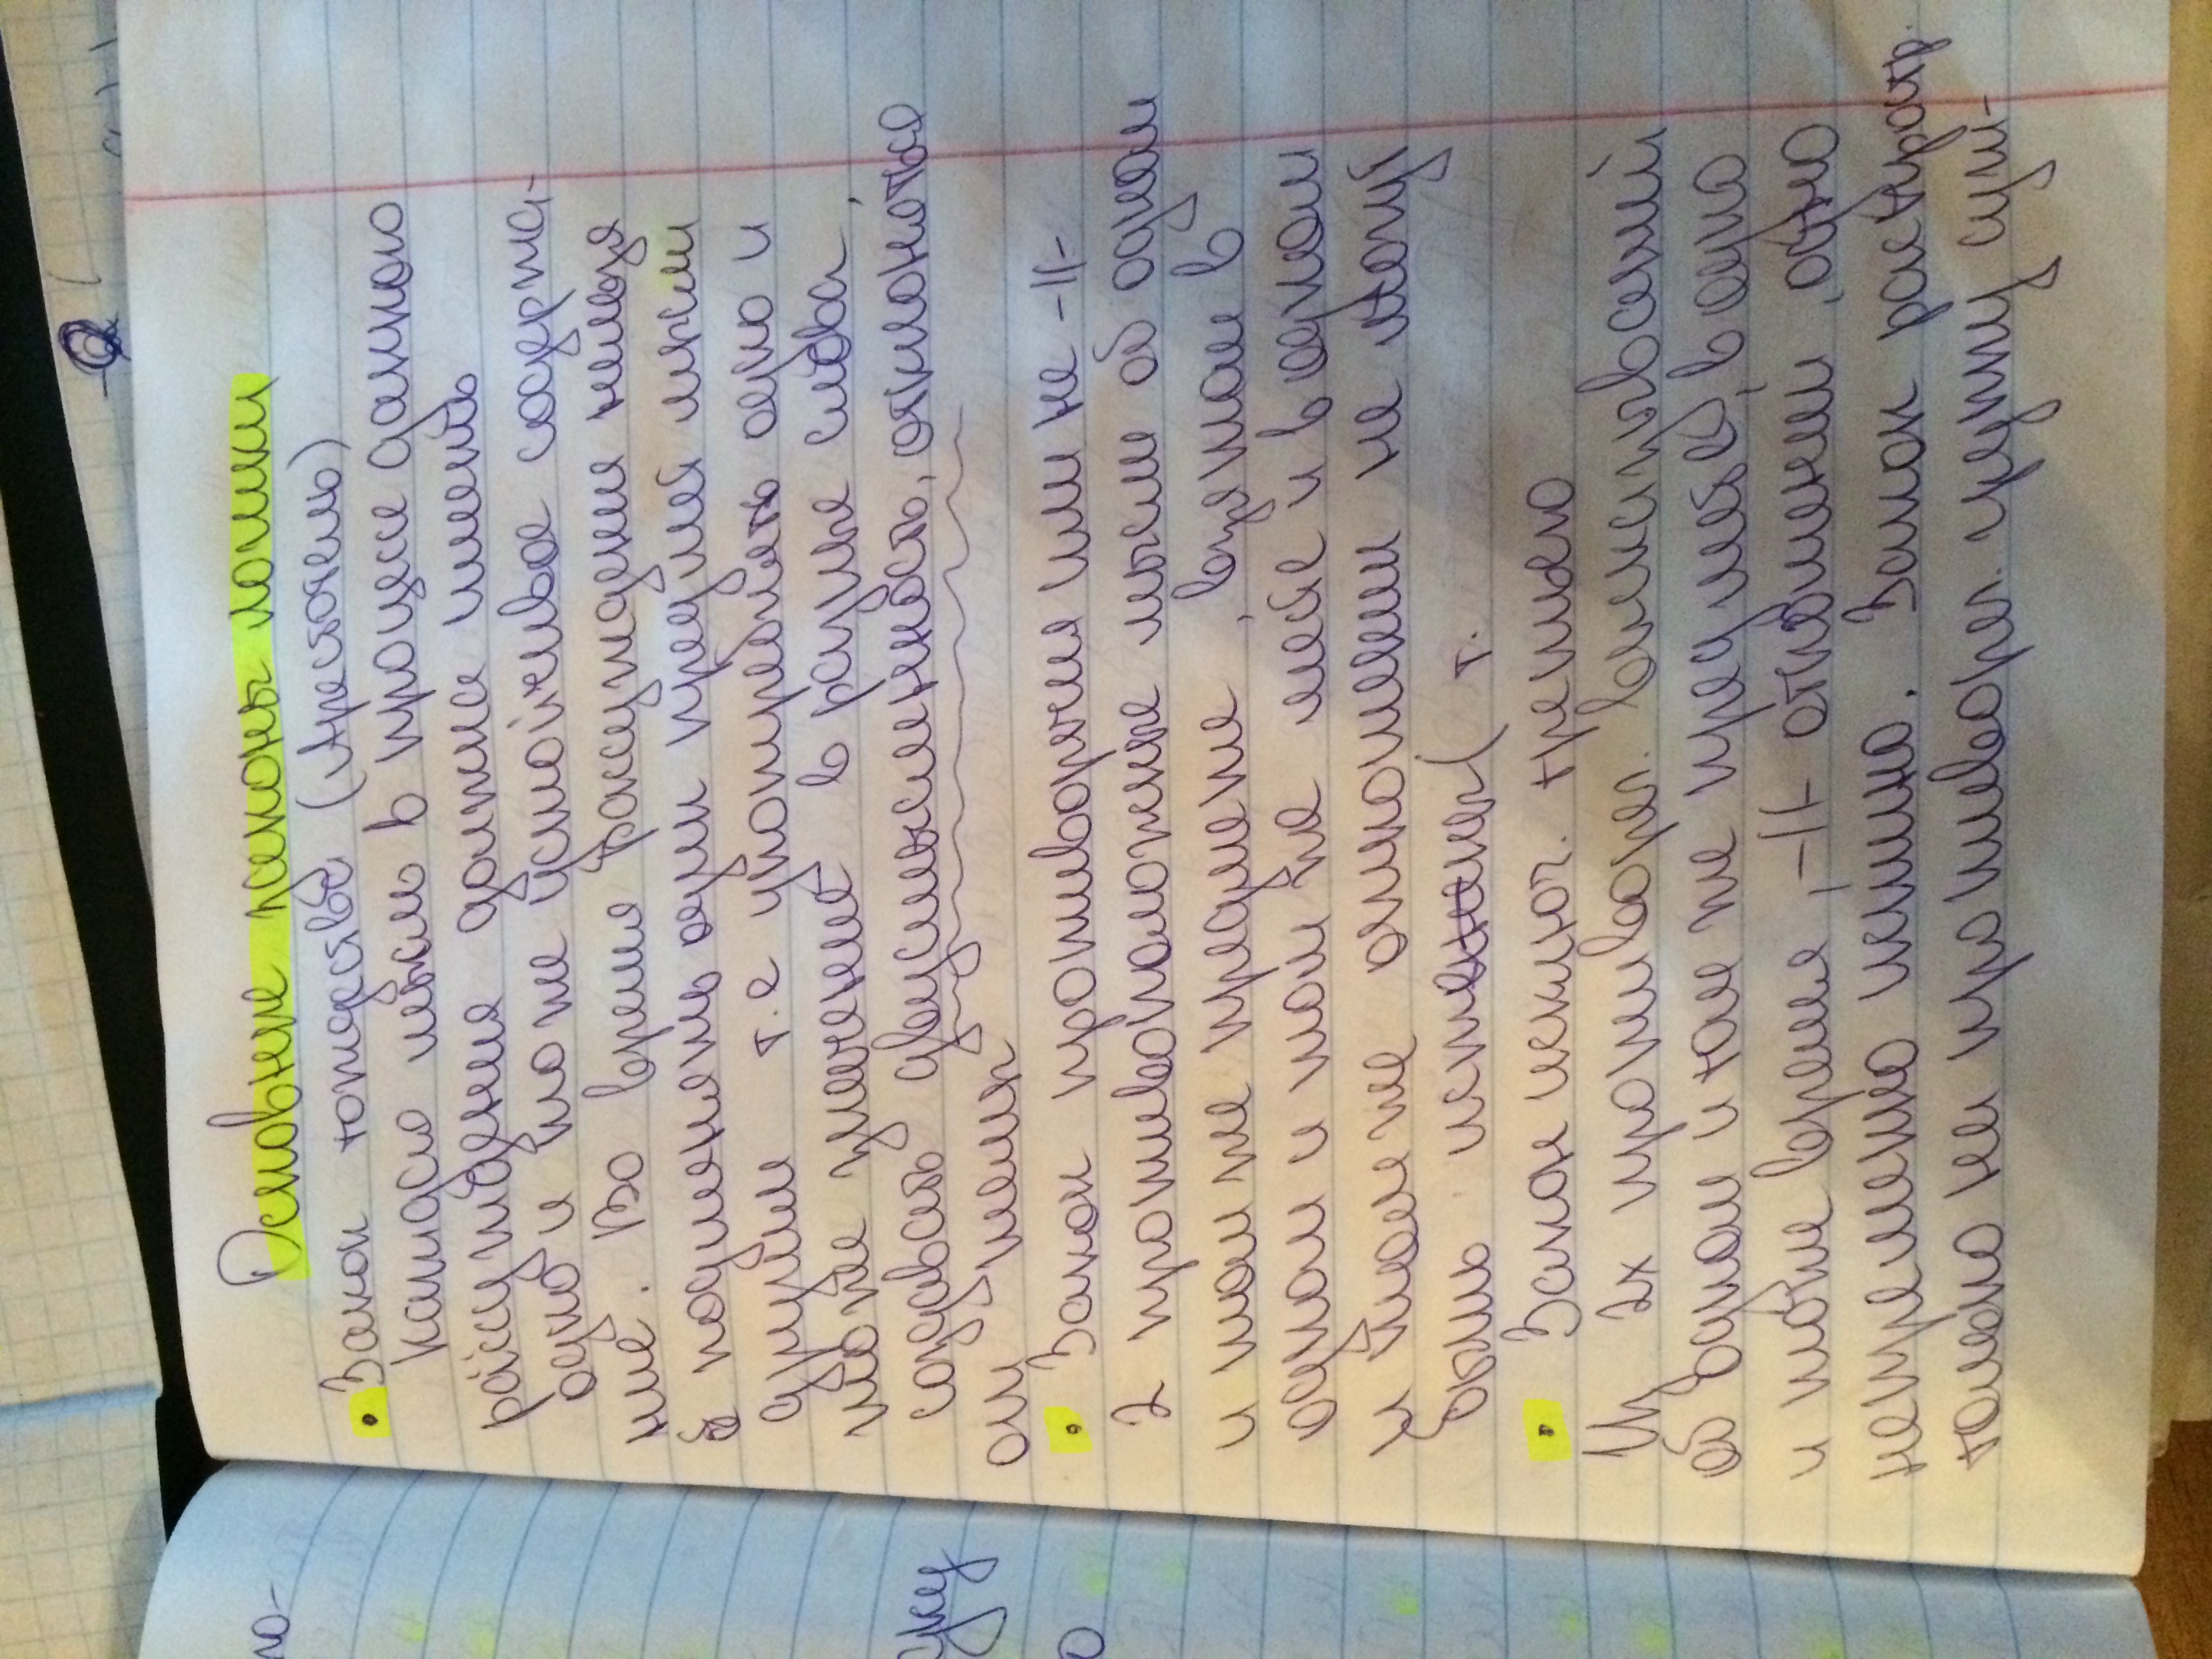 Основные законы логики
• Закон тождества (Арестотель)
Каждая мысль в процессе данного
рассуждения должна иметь
одно и тоже устойчивое содержа-
ние. Во время рассуждения нельзя
подменять один предмет мысли
другим т.е употреблять одно и
тоже значение в разные слова,
создавать двусмысленность, отклоняться
от темы
• Закон противоречия или не -||-
2 противоположные мысли об одном
и том же предмете, взятом в
одном и том же месте и в одном
и том же отношении не могут
быть ( т.
• Закон исключ. третьего
Из 2х противореч. высказываний
об одном и том же предмете, в одно
и тоже время, -||- отношении, одно
непременно истино. Закон распростр.
только на противореч. группу суж-
но-
дку
о